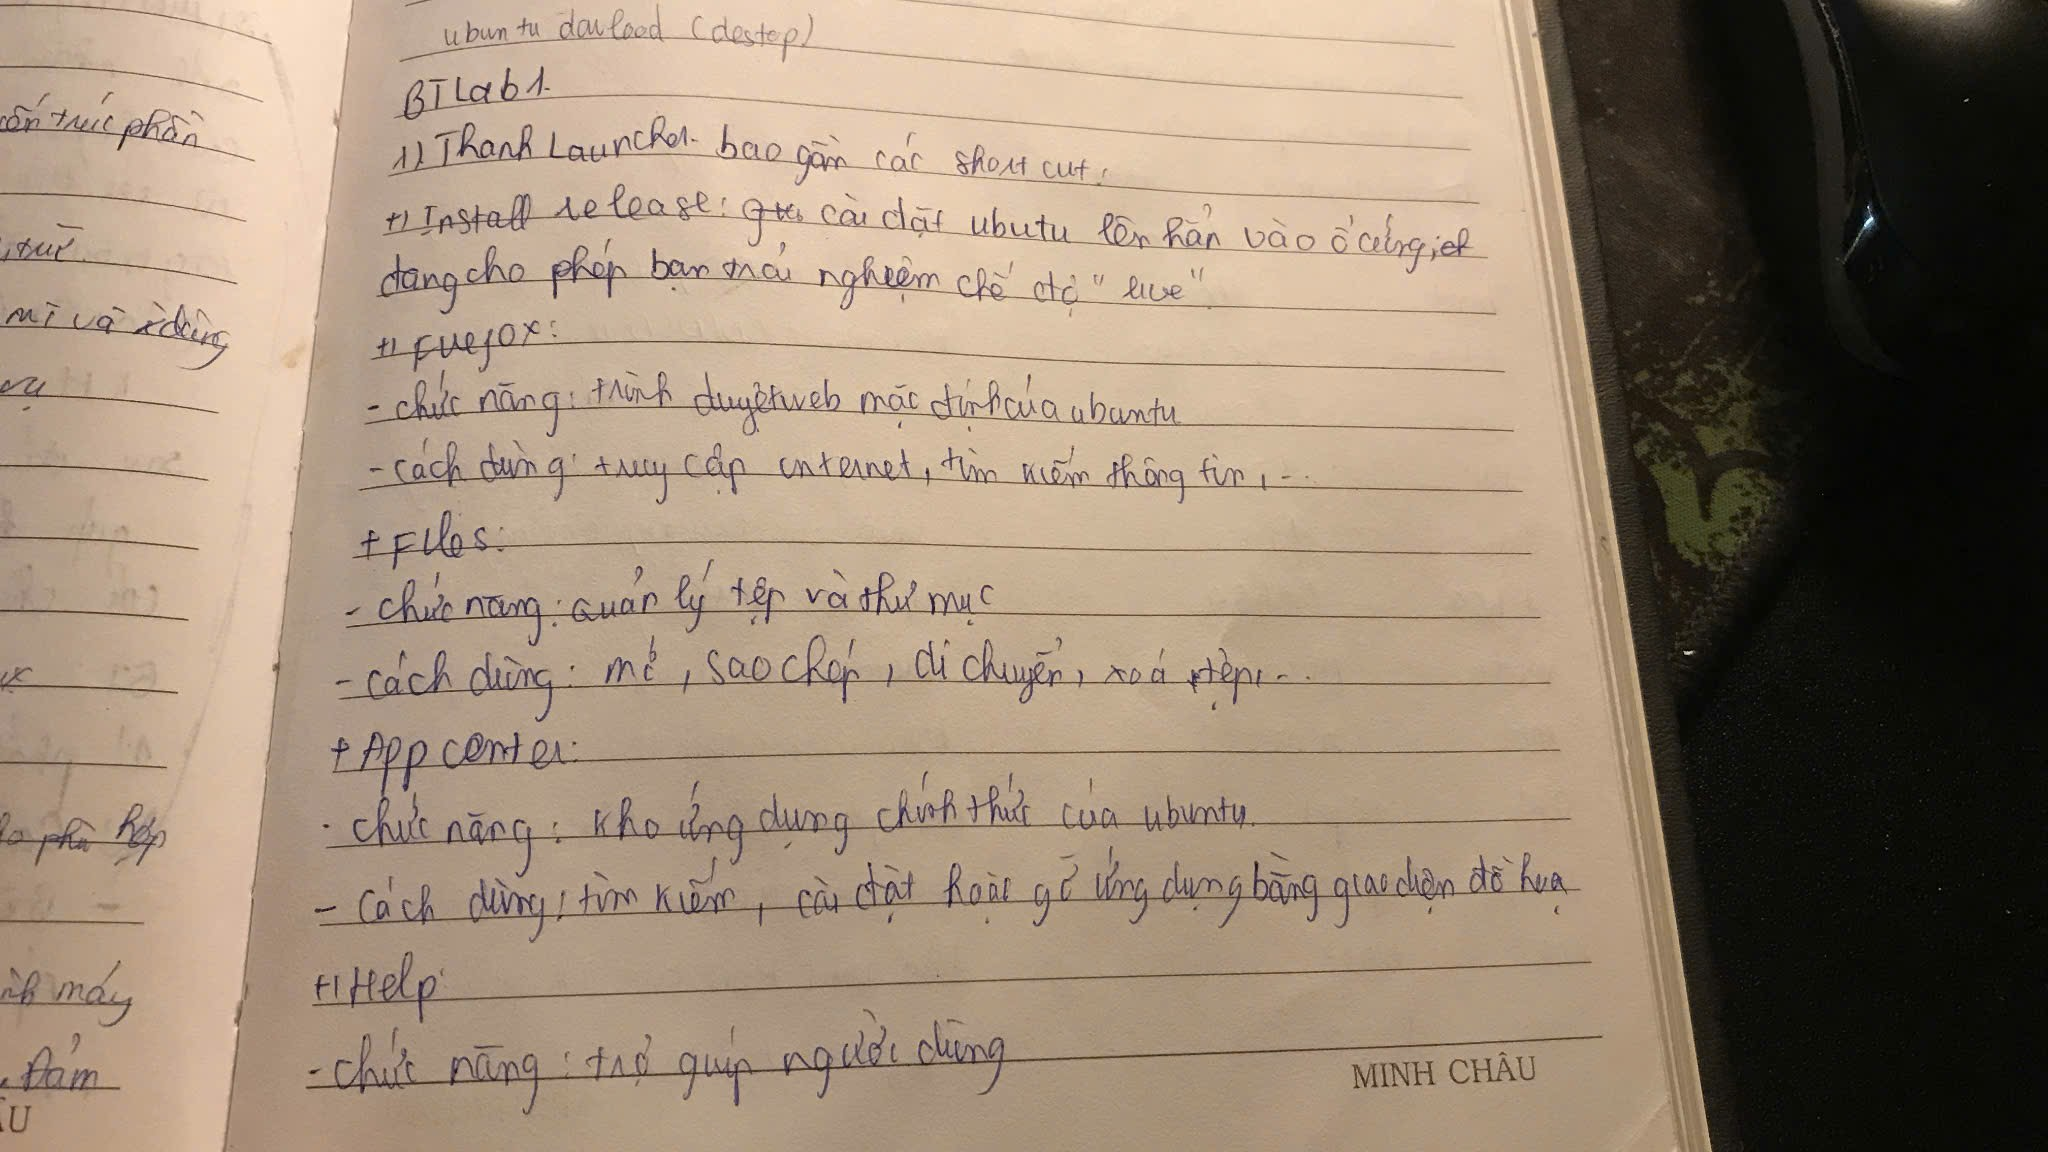 cấu trúc phần
mì và
vụ
phù hợp
máy
Đảm
ubuntu dowload (destop)
BT Lab 1.
1) Thanh Launcher bao gồm các short cut:
+) Install release: cài đặt ubutu lên hẳn vào ổ cứng,
đang cho phép bạn trải nghiệm chế độ "live"
+) Firefox:
- chức năng: trình duyệt web mặc định của ubuntu
- cách dùng: truy cập internet, tìm kiếm thông tin, ...
+ Files:
- chức năng: quản lý tệp và thư mục
- cách dùng: mở, sao chép, di chuyển, xoá tệp, ...
+ App center:
- chức năng: kho ứng dụng chính thức của ubuntu.
- cách dùng: tìm kiếm, cài đặt hoặc gỡ ứng dụng bằng giao diện đồ hoạ
+) Help:
- chức năng: trợ giúp người dùng
MINH CHÂU